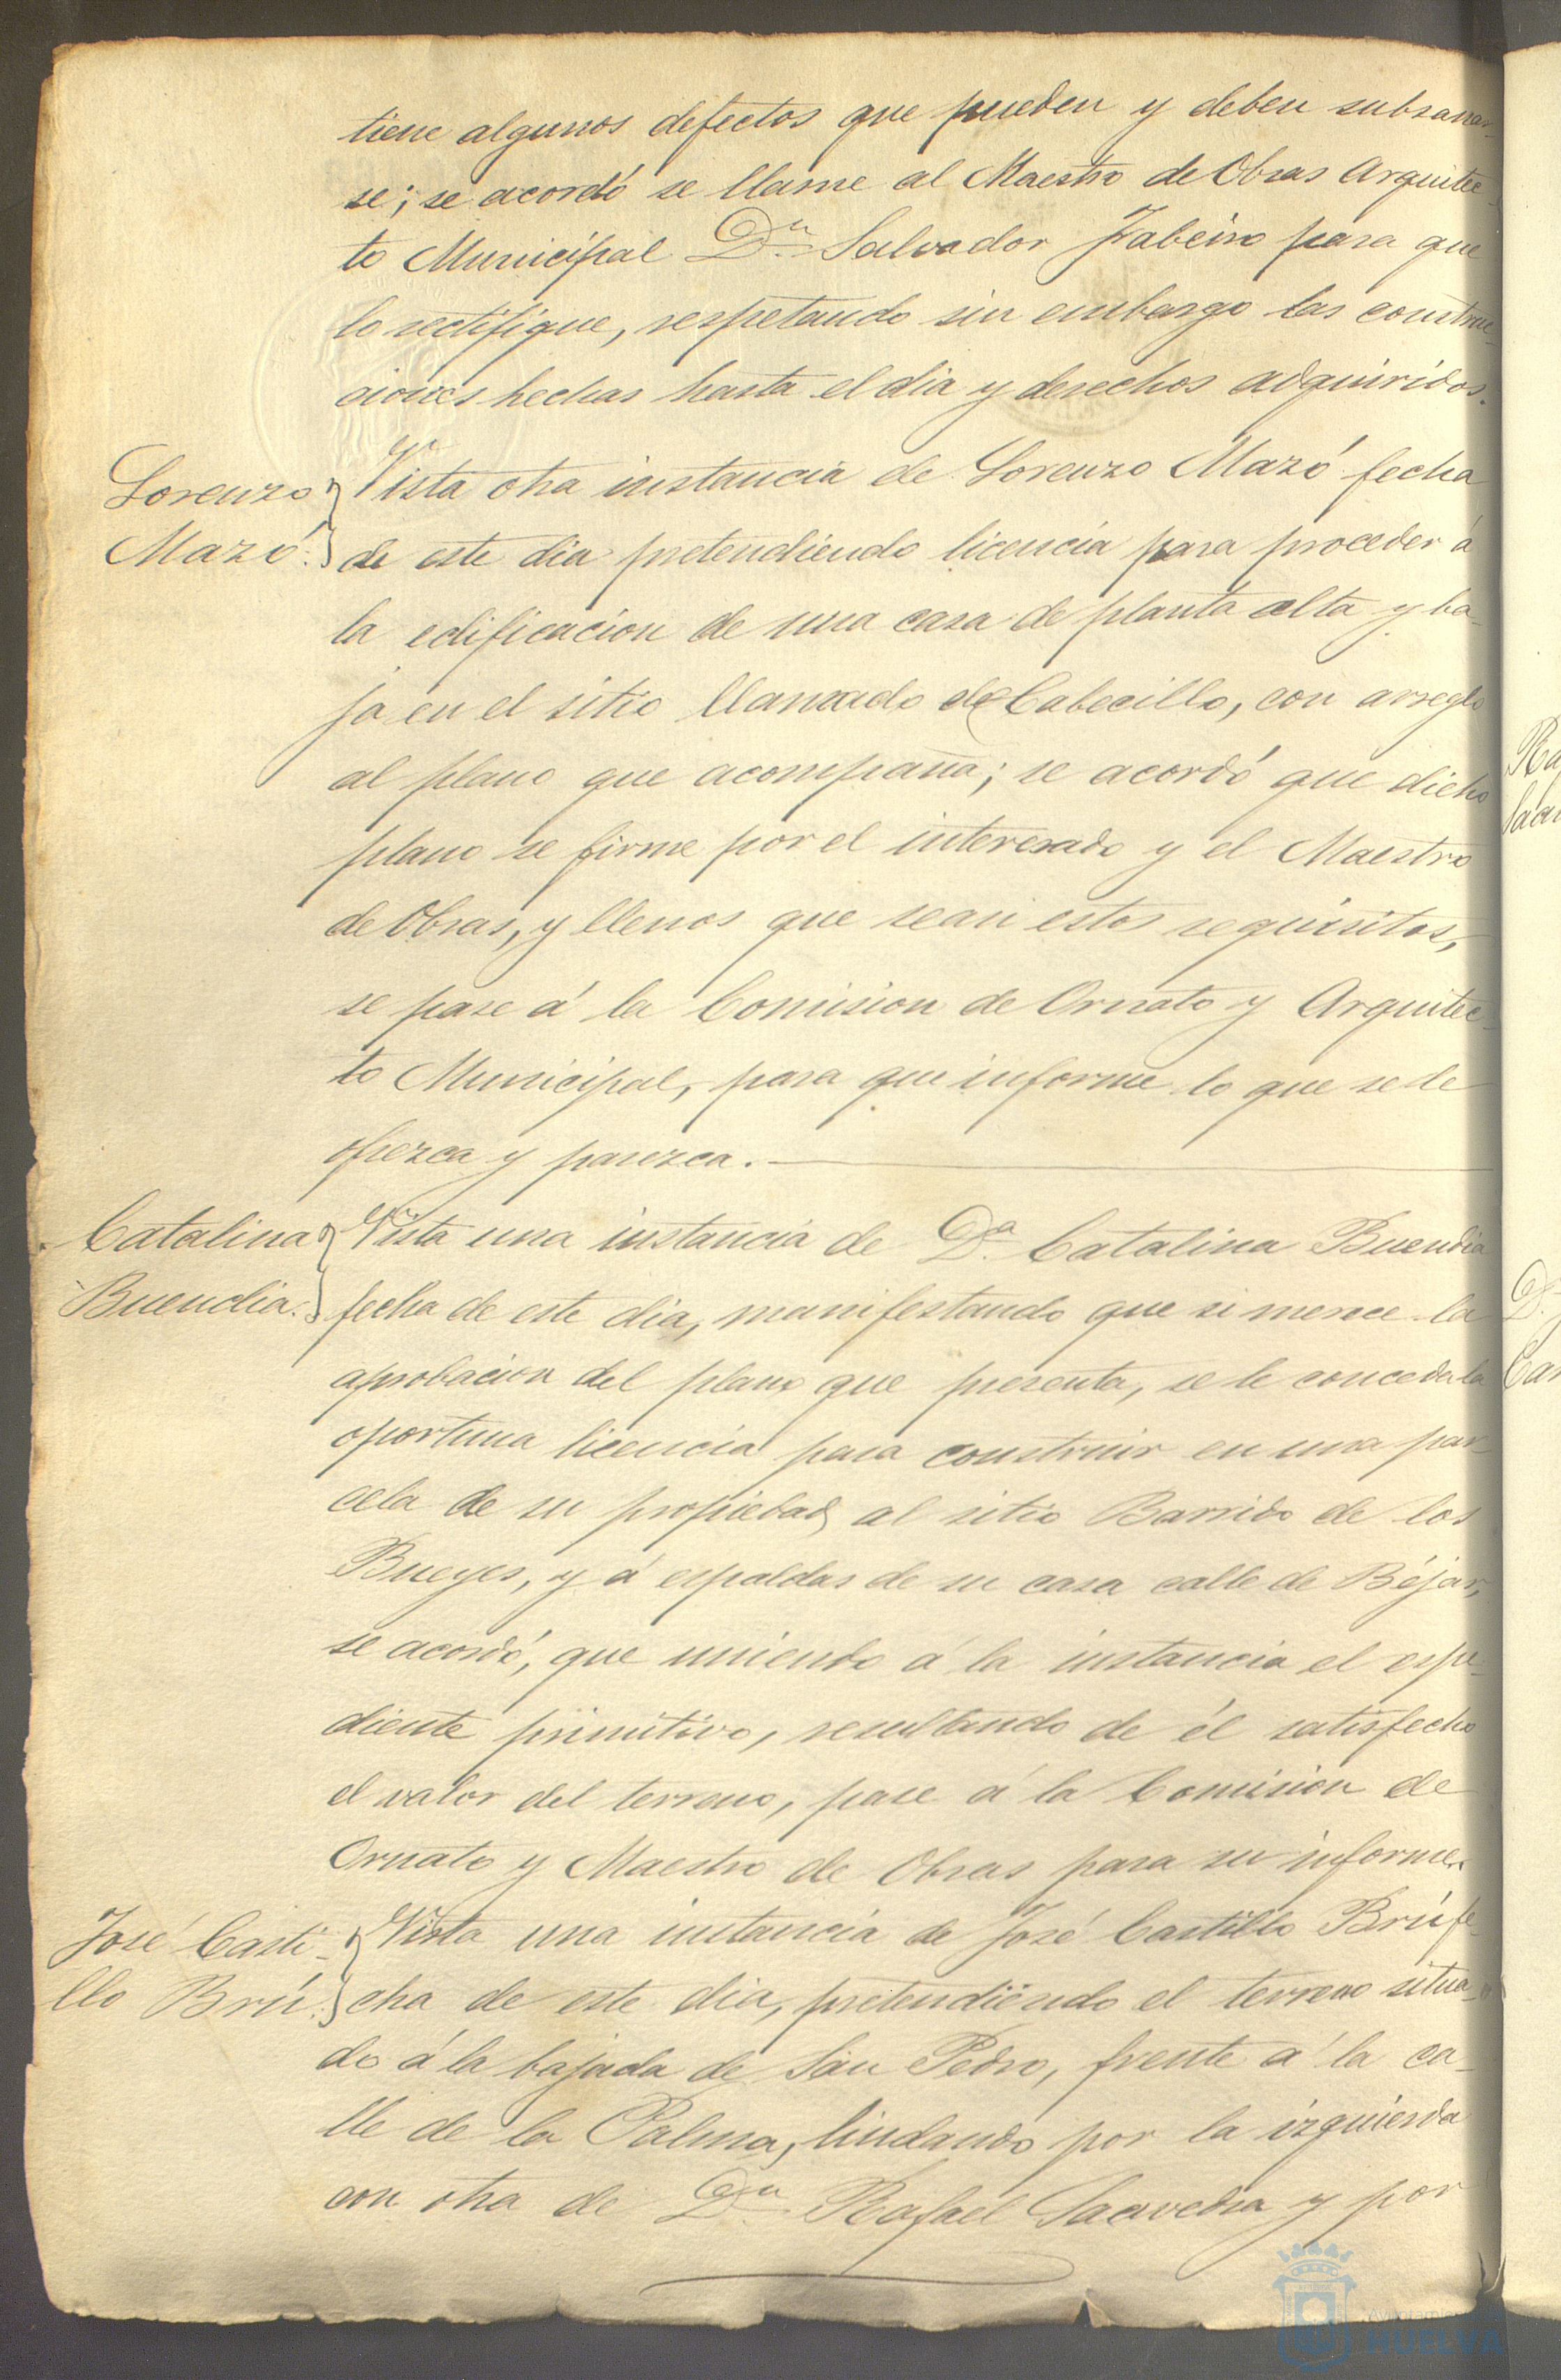 tiene algunos defectos que pueden y deben subsanar-
se; se acordó se llame al Maestro de Obras Arquitec-
to Municipal Dn. Salvador Zabeiro para que
lo rectifique, respetando sin embargo las construc-
ciones hechas hasta el dia y derechos adquiridos.
Lorenzo
Mazó.
Vista otra instancia de Lorenzo Mazó fecha
de este dia pretendiendo licencia para proceder á
la edificacion de una casa de planta alta y ba-
ja en el sitio llamado del Cabecillo, con arreglo
al plano que acompaña; se acordó que dicho
plano se firme por el interesado y el Maestro
de Obras, y llenos que sean estos requisitos,
se pase á la Comision de Ornato y Arquitec-
to Municipal, para que informe lo que se le
ofrezca y parezca.
Catalina
Buendia.
Vista una instancia de Da. Catalina Buendia
fecha de este dia, manifestando que si merece la
aprobacion del plano que presenta, se le conceda la
oportuna licencia para construir en una par-
cela de su propiedad al sitio Barrido de los
Bueyes, y á espaldas de su casa calle de Béjar,
se acordó, que uniendo á la instancia el espe-
diente primitivo, resultando de él satisfecho
el valor del terreno, pase á la Comision de
Ornato y Maestro de Obras para su informe.
José Casti-
llo Brú.
Vista una instancia de José Castillo Brú fe-
cha de este dia, pretendiendo el terreno situa-
do á la bajada de San Pedro, frente á la ca-
lle de la Palma, lindando por la izquierda
con otra de Dn. Rafael Saavedra y por
HUELVA